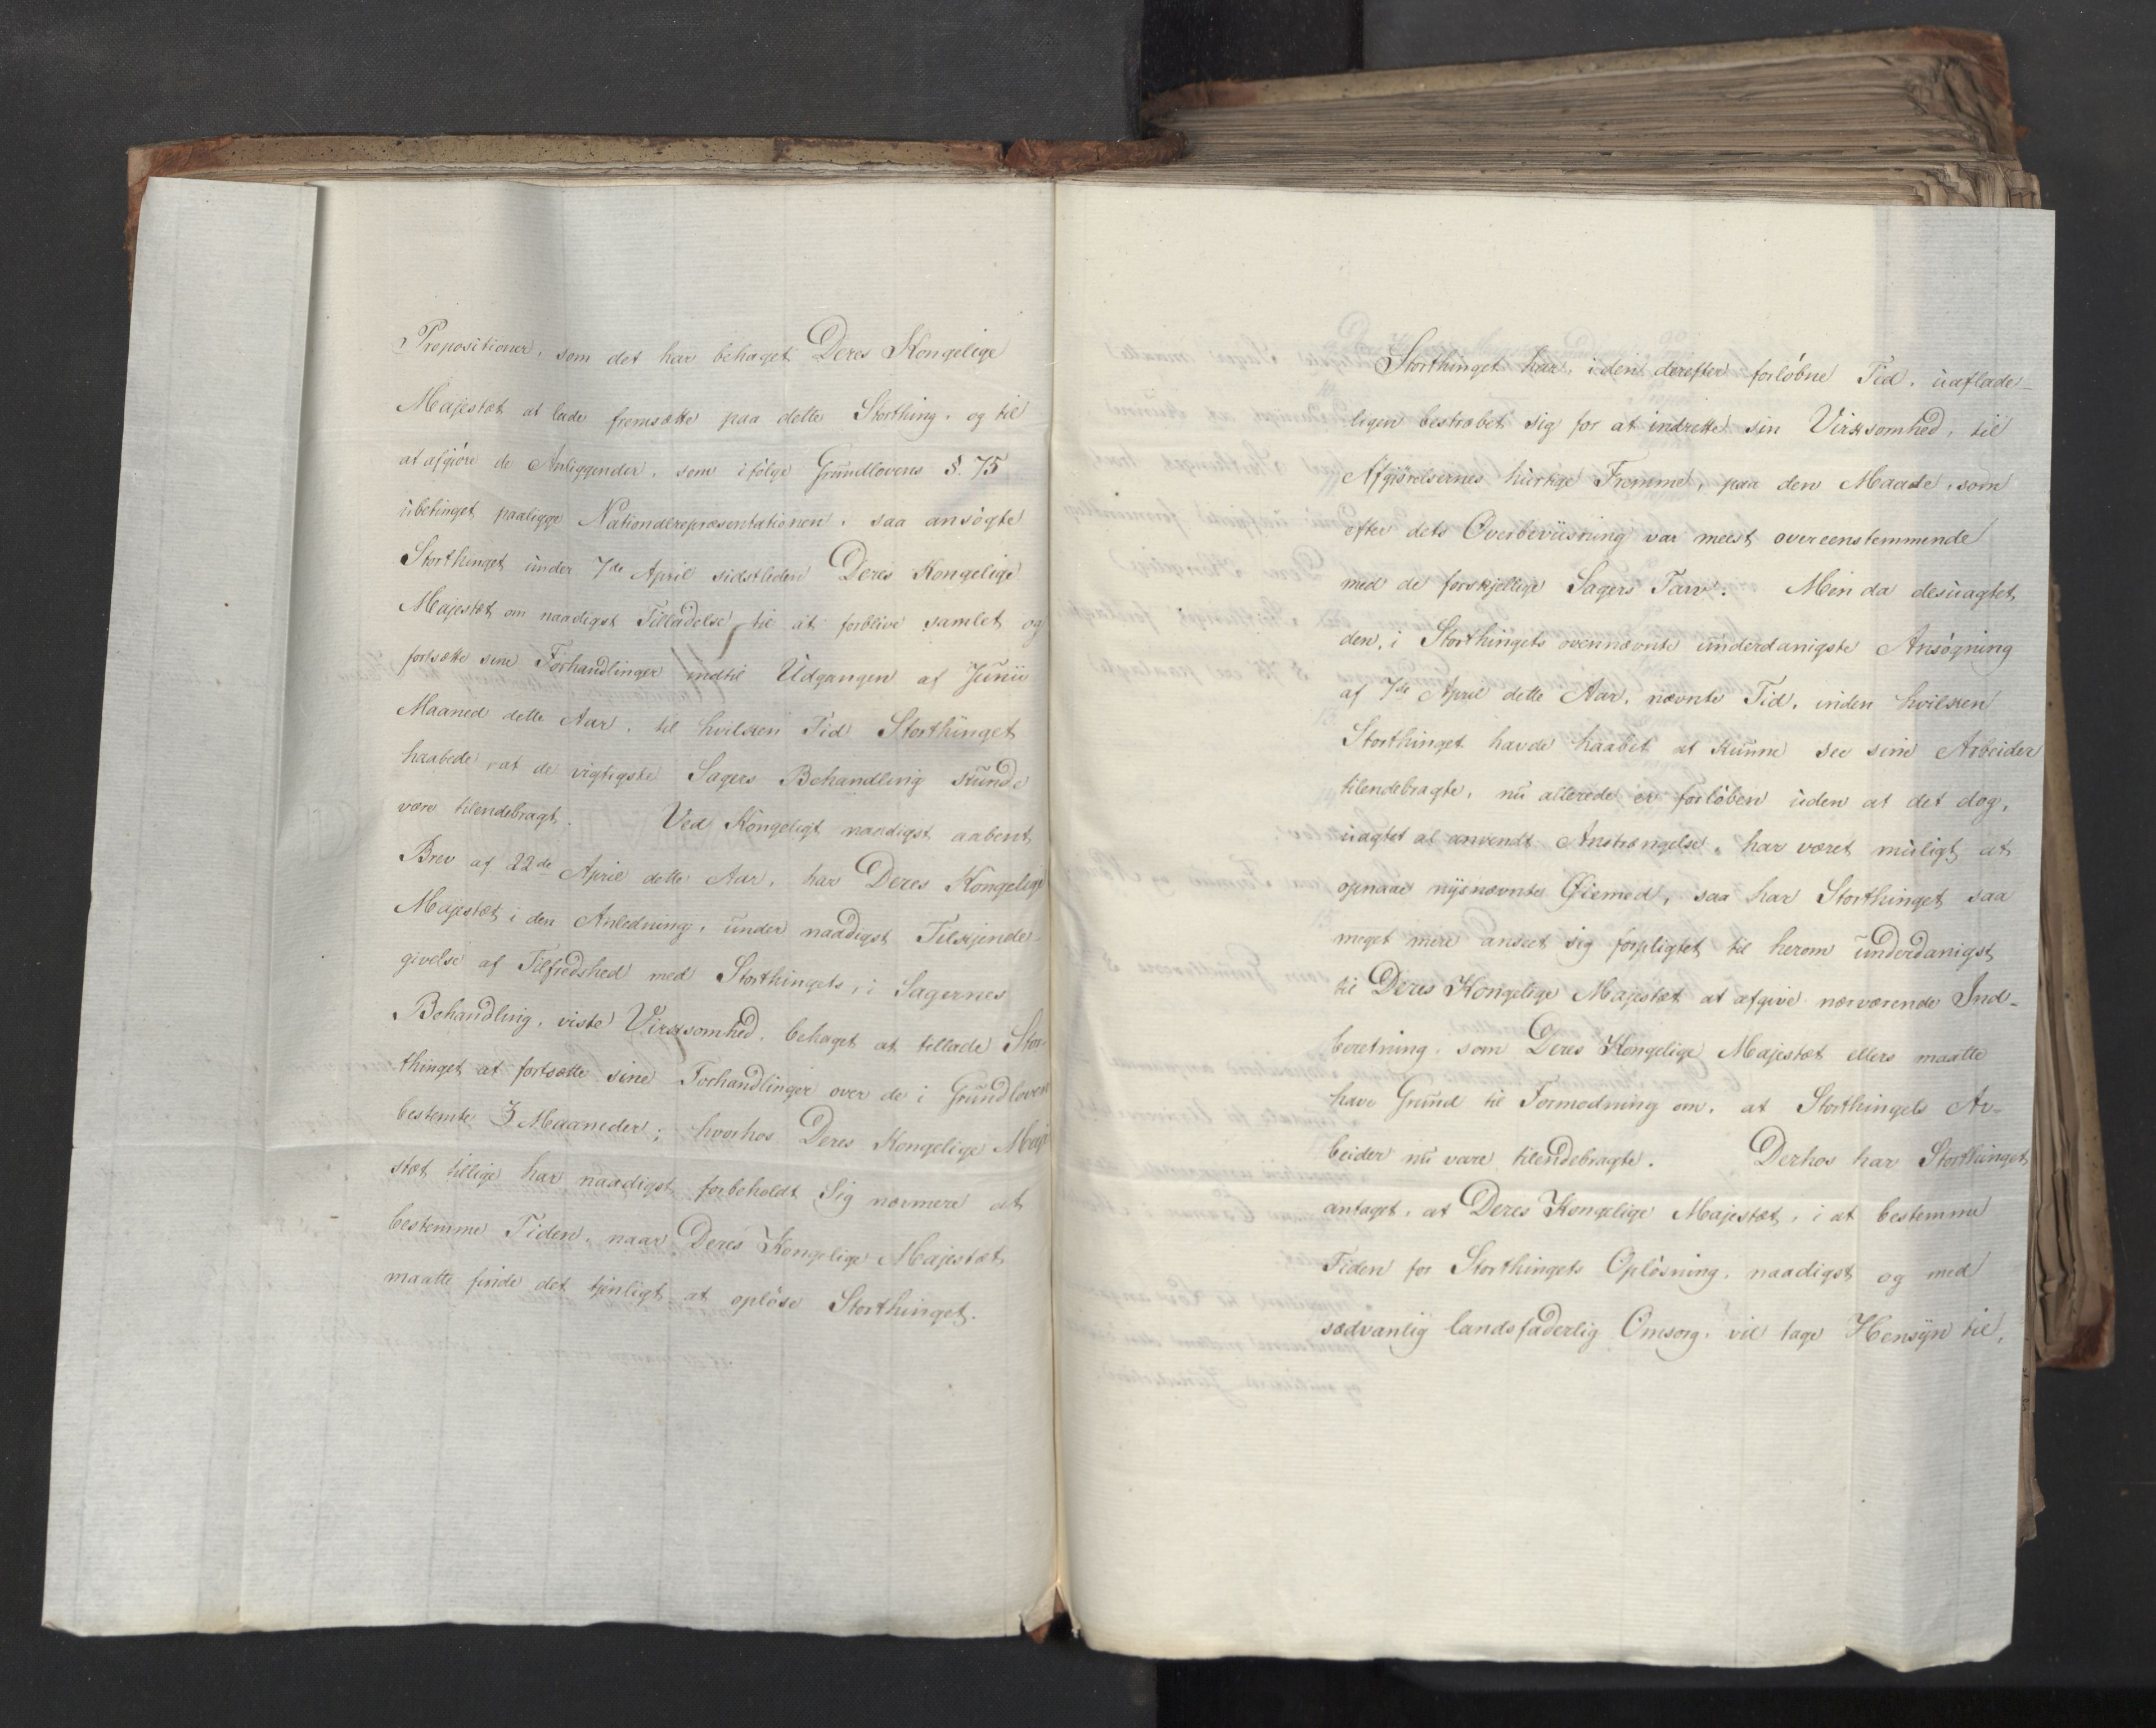 Propositioner, som det har behaget Deres Kongelige
Majestæt at lade fremsætte paa dette Storthing, og til
at afgiöre de Anliggender, som ifölge Grundlovens §. 75
ubetinget paaligge Nationalrepræsentationen, saa ansögte
Storthinget under 7de April sidstleden Deres Kongelige
Majestæt om naadigst Tilladelse til at forblive samlet og
fortsætte sine Forhandlinger indtil Udgangen af Junii
Maaned dette Aar, til hvilken Tid Storthinget
haabede, at de vigtigste Sagers Behandling kunde
være tilendebragt. Ved Kongeligt naadigst aabent
Brev af 22de April dette Aar, har Deres Kongelige
Majestæt i den Anledning, under naadigst Tilkjende-
givelse af Tilfredshed med Storthingets, i Sagernes
Behandling, viste Virksomhed, behaget at tillade Stor-
thinget at fortsætte sine Forhandlinger over de i Grundloven
bestemte 3 Maaneder; hvorhos Deres Kongelige Maje
stæt tillige har naadigst forbeholdt Sig nærmere at
bestemme Tiden, naar Deres Kongelige Majestæt
maatte finde det tjenligt at oplöse Storthinget.
Storthinget har, i den derefter forlöbne Tid, uaflade-
ligen bestræbet sig for at indrette sin Virksomhed, til
Afgjörelsernes hurtige Fremme, paa den Maade, som
efter dets Overbeviisning var meest overeensstemmende
med de forskjellige Sagers Tarv. Men da desuagtet
den, i Storthingets ovennævnte underdanigste Ansögning
af 7de April dette Aar, nævnte Tid, inden hvilken
Storthinget havde haabet at kunne see sine Arbeider
tilendebragte, nu allerede er forlöben uden at det dog,
uagtet al anvendt Anstrængelse, har været muligt at
opnaae nysnævnte Øiemed, saa har Storthinget saa
meget mere anseet sig forpligtet til herom underdanigst
til Deres Kongelige Majestæt at afgive nærværende Ind-
beretning, som Deres Kongelige Majestæt ellers maatte
have Grund til Formodning om, at Storthingets Ar-
beider nu vare tilendebragte. Derhos har Storthinget
antaget, at Deres Kongelige Majestæt, i at bestemme
Tiden for Storthingets Oplösning, naadigst og med
sædvanlig landsfaderlig Omsorg, vil tage Hensyn til,